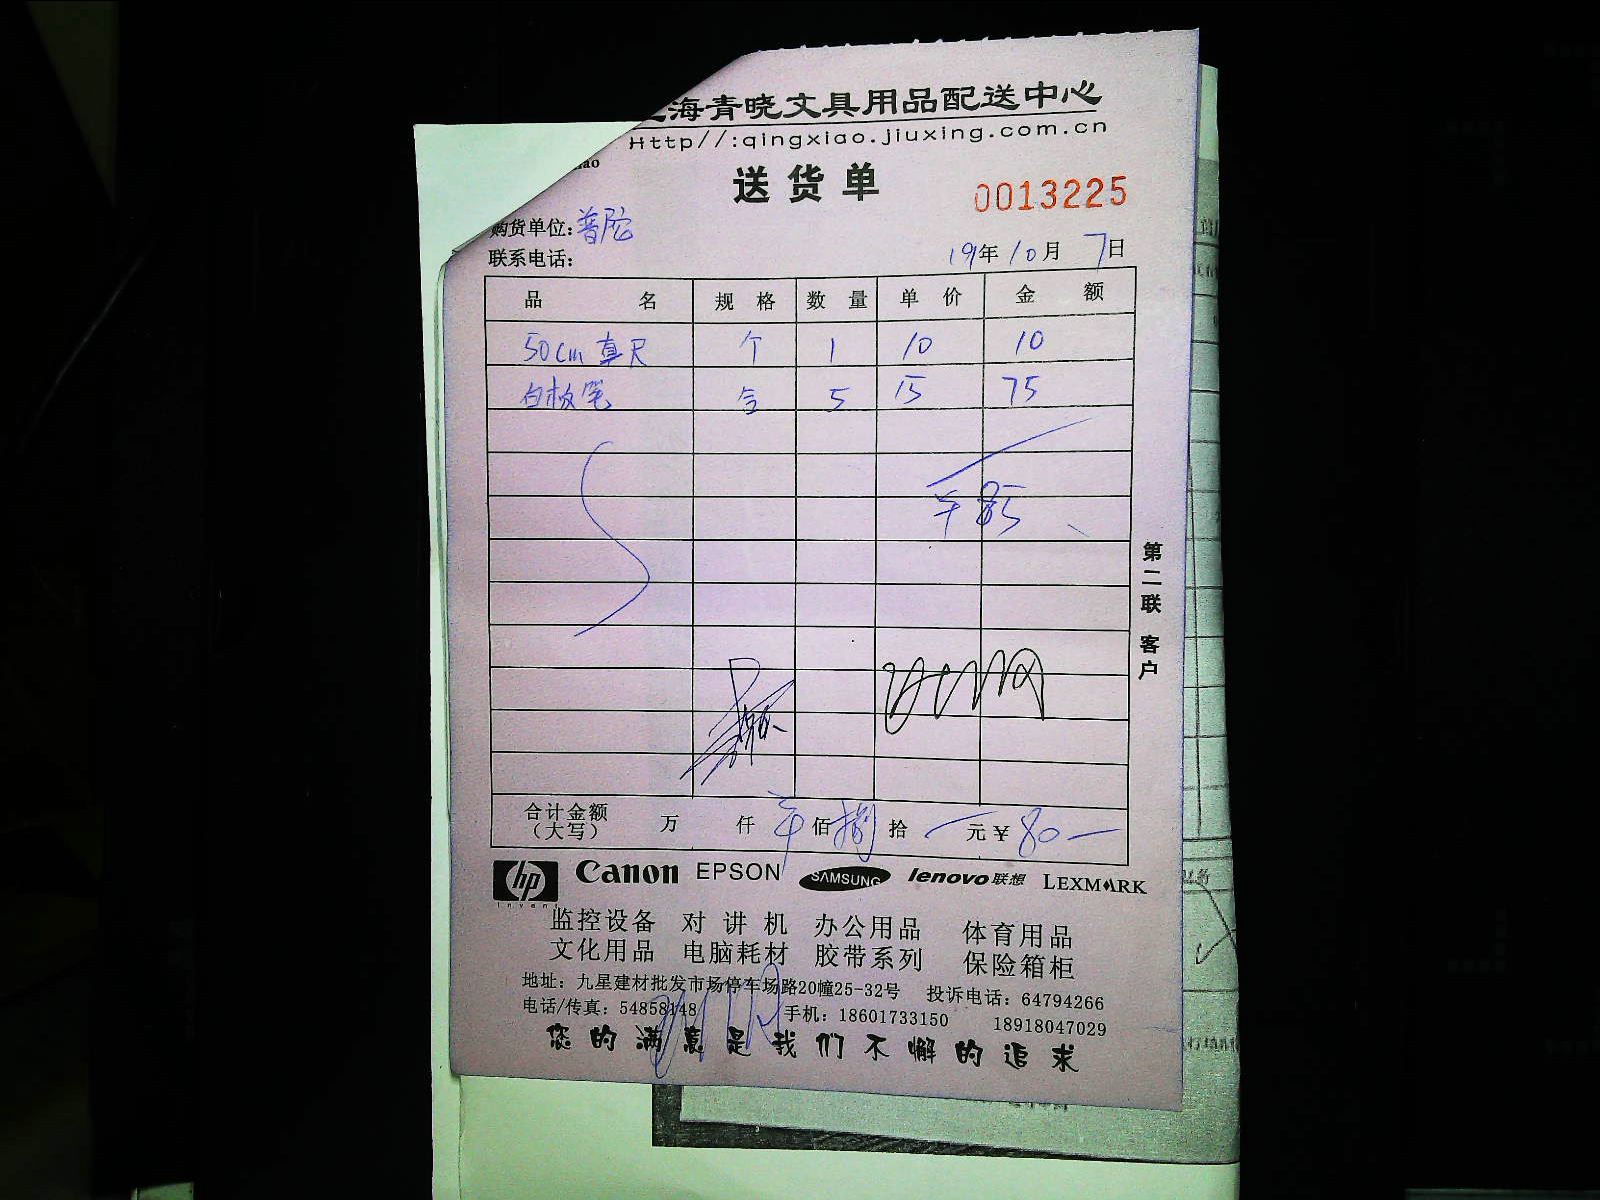 海青晓文具用品配送中心
Http//:qingxiao.jiuxing.com.cn
送货单 0013225
购货单位：普陀
联系电话： 19年10月7日
品名 规格 数量 单价 金额
50cm直尺 个 1 10 10
白板笔 合 5 15 75
¥85
第二联 客户
合计金额（大写） 万 仟 佰 捌 拾 元¥80
hp invent Canon EPSON SAMSUNG lenovo联想 LEXMARK
监控设备 对讲机 办公用品 体育用品
文化用品 电脑耗材 胶带系列 保险箱柜
地址：九星建材批发市场停车场路20幢25-32号 投诉电话：64794266
电话/传真：54858148 手机：18601733150 18918047029
您的满意是我们不懈的追求